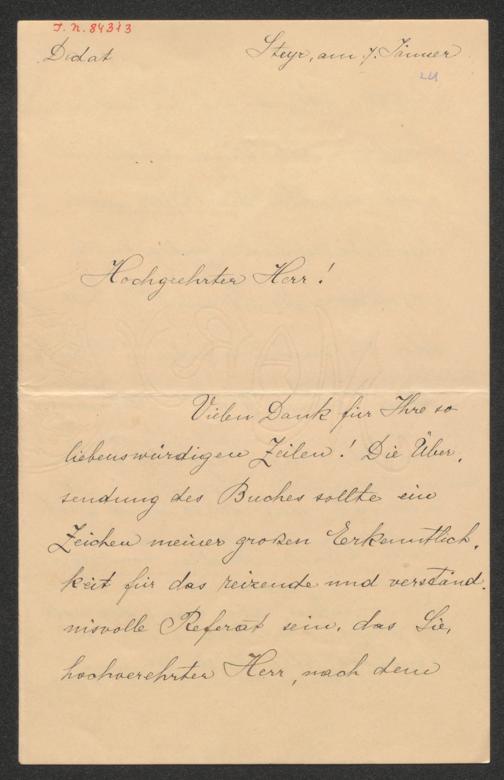 I. N. 84313
Dodat
Steyr, am 7. Jänner
Hochgeehrter Herr!
Vielen Dank für Ihre so
liebenswürdigen Zeilen! Die Über,
sendung des Buches sollte ein
Zeichen meiner großen Erkenntlich,
keit für das reizende und verständ,
nisvolle Referat sein, das Sie,
hochverehrter Herr, nach dem